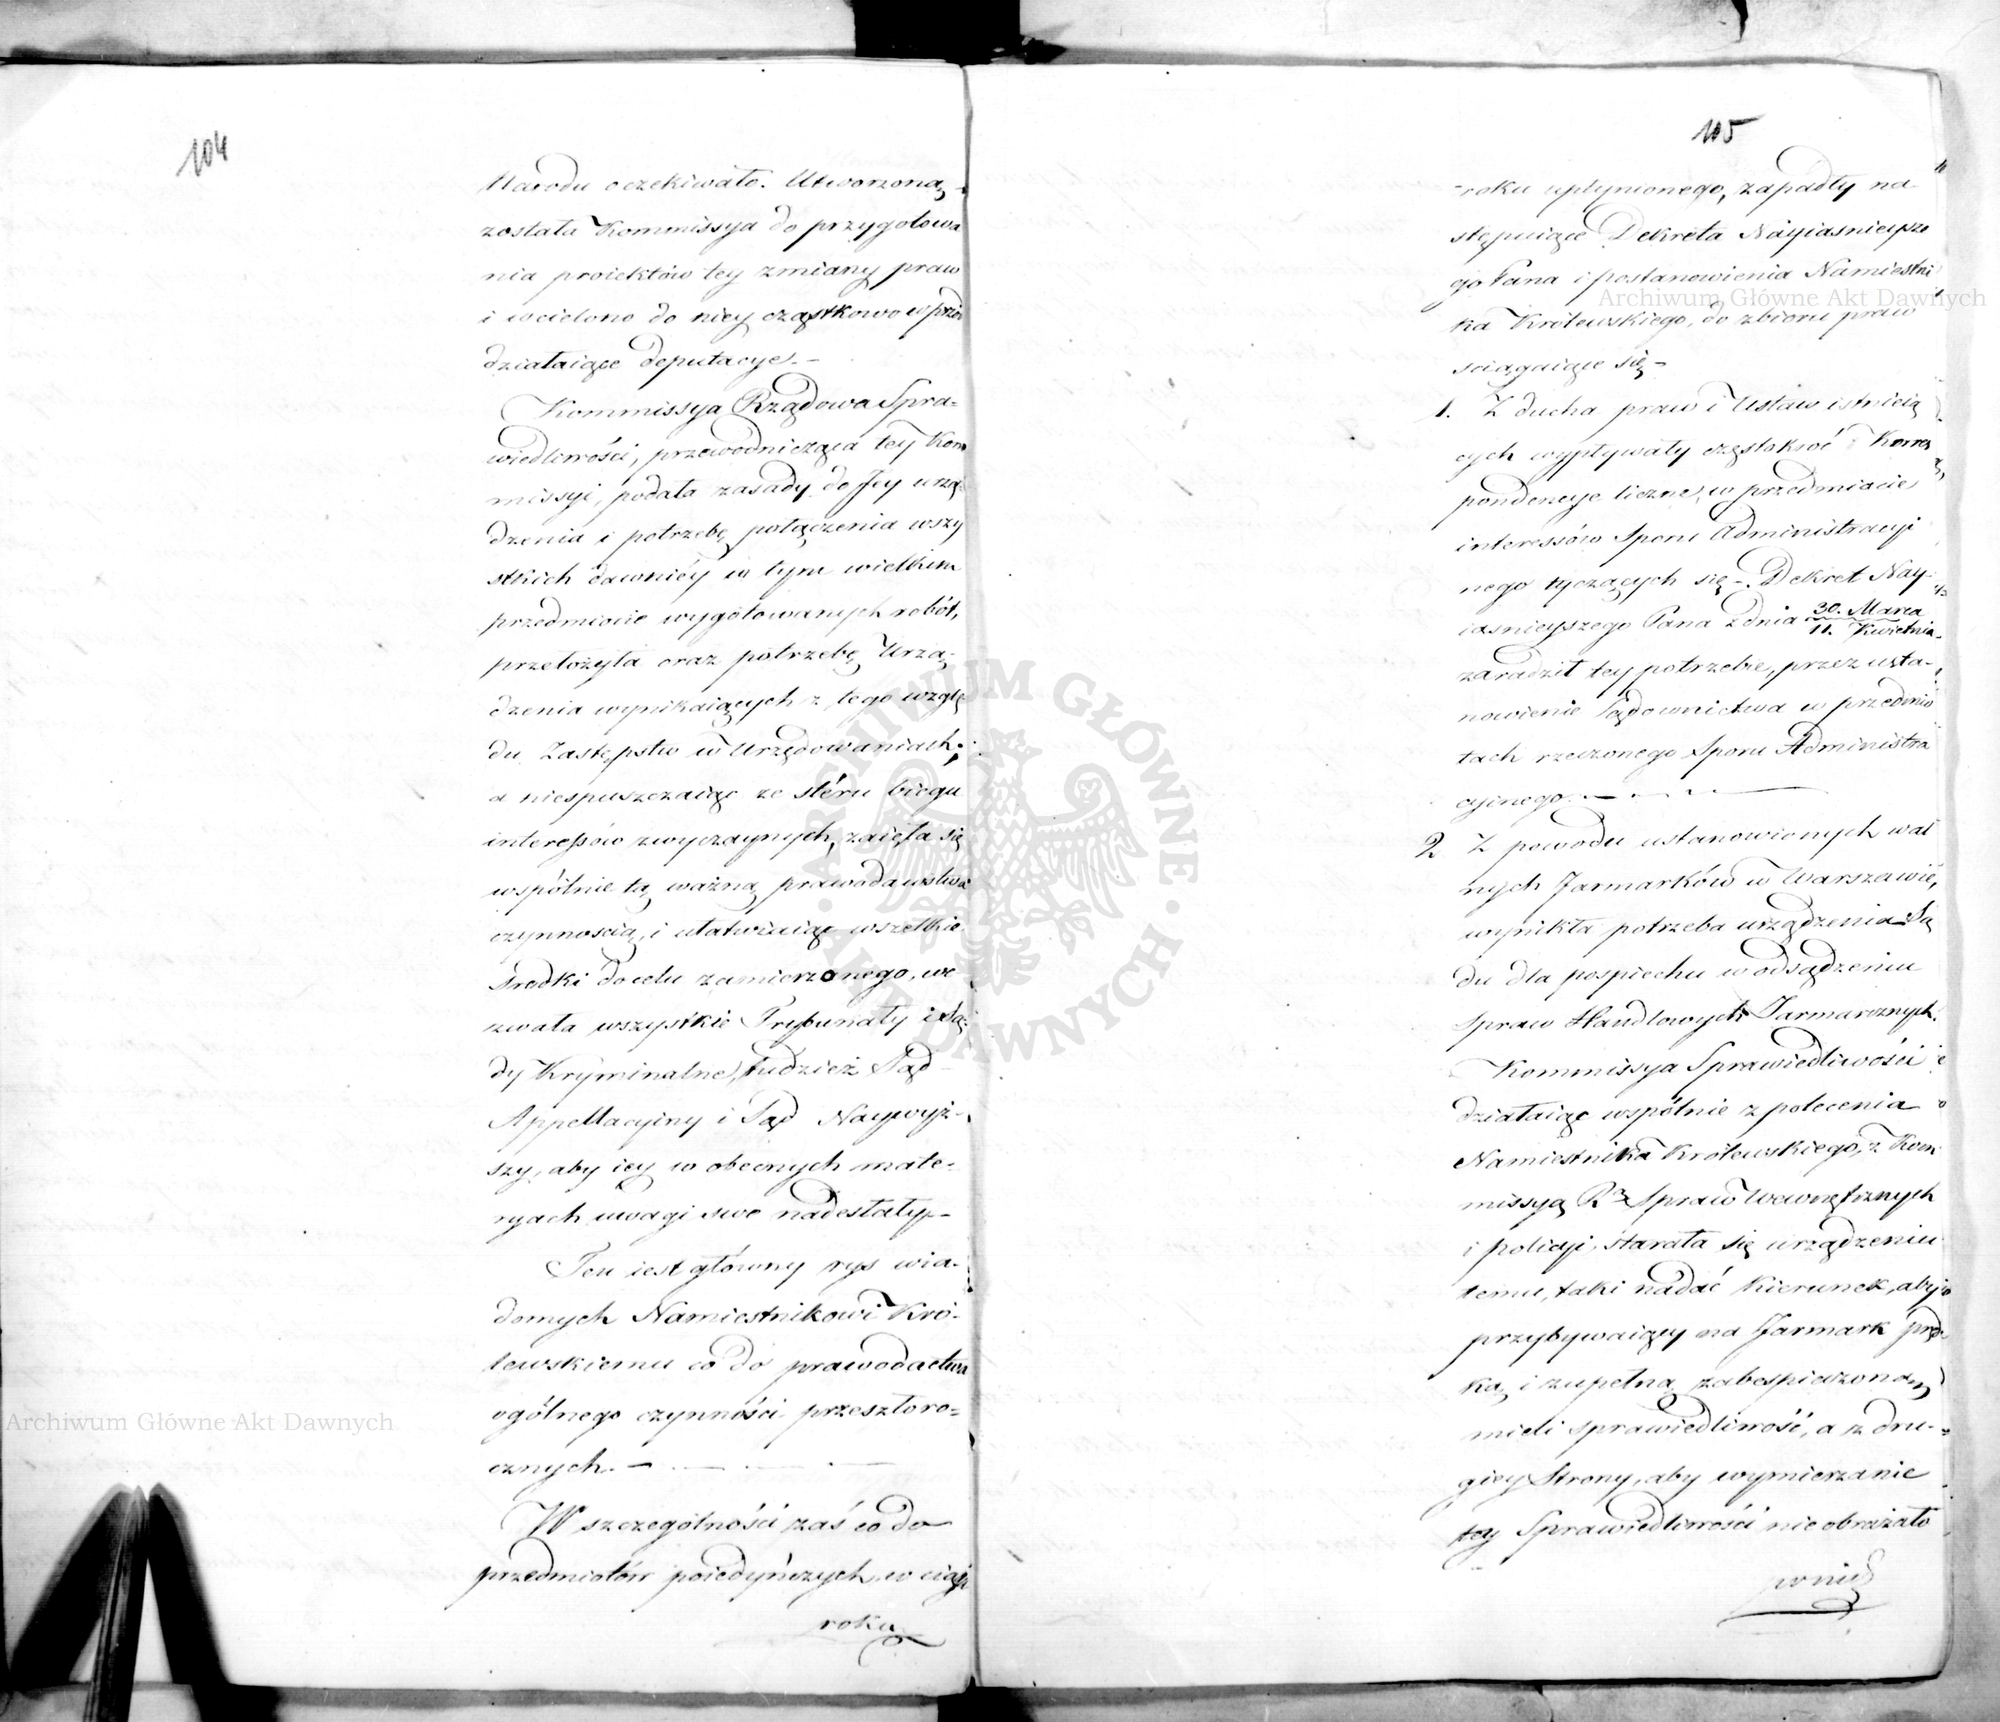 104
Narodu oczekiwało. Utworzoną
została Kommissya do przygotowa
nia proiektów tey zmiany praw
i wcielono do niey cząstkowo wprzód
działaiące deputacye. –
Kommissya Rządowa Spra-
wiedliwości, przewodnicząca tey Kom
missyi, podała zasady do Jey urzą-
dzenia i potrzebę połączenia wszy
stkich dawniéy w tym wielkim
przedmiocie wygotowanych robót,
przełożyła oraz potrzebę Urzą-
dzenia wynikaiących z tego wzglę
du Zastępstw w Urzędowaniach;
a niespuszczaiąc ze stéru biegu
interessów zwyczaynych, zaięła się
wspólnie tą ważną prawodawstwa
czynnością, i ułatwiaiąc wszelkie
środki do celu zamierzonego, we
zwała wszystkie Trybunały i Są-
dy Kryminalne, tudzież Sąd
Appellacyiny i Sąd Naywyż-
szy, aby iey w obecnych mate-
ryach uwagi swe nadesłały. –
Ten iest główny rys wia-
domych Namiestnikowi Kró-
lewskiemu co do prawodactwa
ogólnego czynności przeszłoro-
cznych. –
W szczególności zaś co do
przedmiotów poiedyńczych, w ciągu
roku
105
roku upłynionego, zapadły na
stępuiące Dekreta Nayiasnieysze
go Pana i postanowienia Namiestni
ka Królewskiego, do zbioru praw
ściągaiące się –
1. Z ducha praw i Ustaw istnieią
cych wypływały częstokroć i Korres
pondencye liczne, w przedmiocie
interessów Sporu Administracyi
nego tyczących się –. Dekret Nay-
iasnieyszego Pana z dnia 30. Marca
11. Kwietnia
zaradził tey potrzebie, przez usta-
nowienie Sądownictwa w przedmio
tach rzeczonego Sporu Administra
cyinego. –
2. Z powodu ustanowionych wal
nych Jarmarków w Warszawie,
wynikła potrzeba urządzenia Są
du dla pospiechu w odsądzeniu
spraw Handlowych Jarmarcznych.
Kommissya Sprawiedliwości
działaiąc wspólnie z polecenia
Namiestnika Królewskiego, z Kom
missyą R. Spraw Wewnętrznych
i policyi, starała się urządzeniu
temu, taki nadać kierunek, aby
przybywaiący na Jarmark pręd-
ką i zupełną zabespieczoną
mieli sprawiedliwość, a z dru-
giey Strony, aby wymierzanie
tey Sprawiedliwości nie obrażało
w niczé
Archiwum Główne Akt Dawnych
Archiwum Główne Akt Dawnych
ARCHIWUM GŁÓWNE AKT DAWNYCH